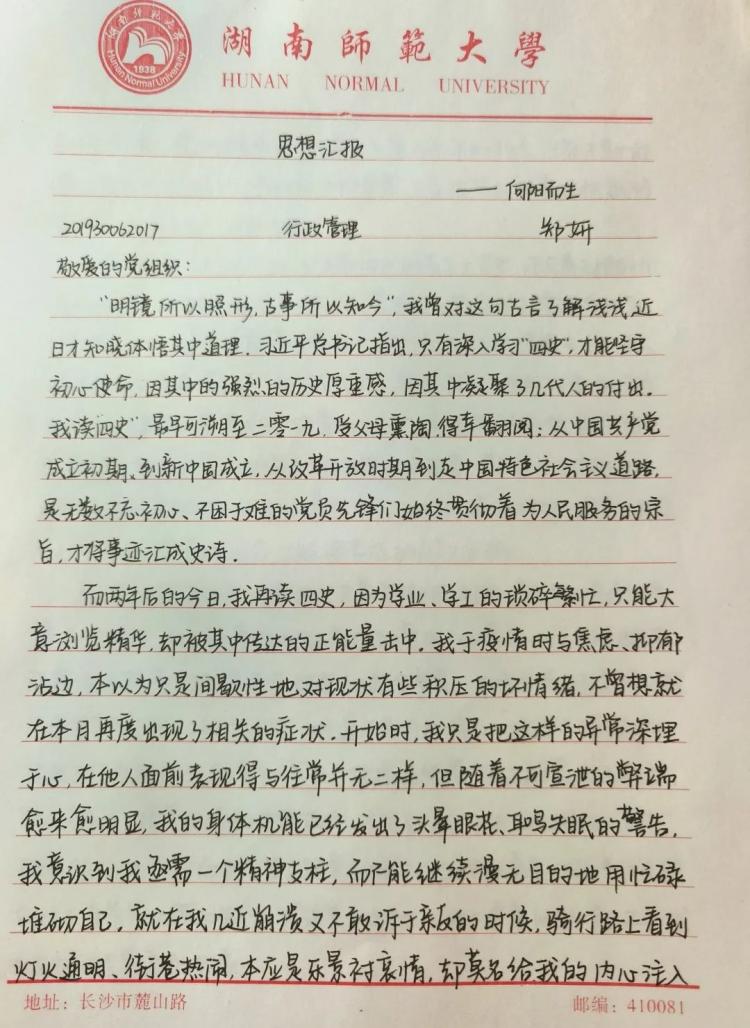 湖南师范大学
Hunan Normal University
1938
湖南師範大學
HUNAN NORMAL UNIVERSITY
思想汇报
——向阳而生
201930062017 行政管理 郑妍
敬爱的党组织：
“明镜所以照形，古事所以知今”，我曾对这句古言了解浅浅，近
日才知晓体悟其中道理。习近平总书记指出，只有深入学习“四史”，才能坚守
初心使命，因其中的强烈的历史厚重感，因其中凝聚了几代人的付出。
我读“四史”，最早可溯至二零一九，受父母熏陶，得幸翻阅：从中国共产党
成立初期、到新中国成立，从改革开放时期到走中国特色社会主义道路，
是无数不忘初心、不困于难的党员先锋们始终贯彻着为人民服务的宗
旨，才将事迹汇成史诗。
而两年后的今日，我再读四史，因为学业、学工的琐碎繁忙，只能大
意浏览精华，却被其中传达的正能量击中。我于疫情时与焦虑、抑郁
沾边，本以为只是间歇性地对现状有些积压的坏情绪，不曾想就
在本月再度出现了相关的症状。开始时，我只是把这样的异常深埋
于心，在他人面前表现得与往常并无二样，但随着不可宣泄的弊端
愈来愈明显，我的身体机能已经发出了头晕眼花、耳鸣失眠的警告，
我意识到我亟需一个精神支柱，而不能继续漫无目的地用忙碌
堆砌自己。就在我几近崩溃又不敢诉于亲友的时候，骑行路上看到
灯火通明、街巷热闹，本应是乐景衬哀情，却莫名给我的内心注入
地址：长沙市麓山路 邮编：410081